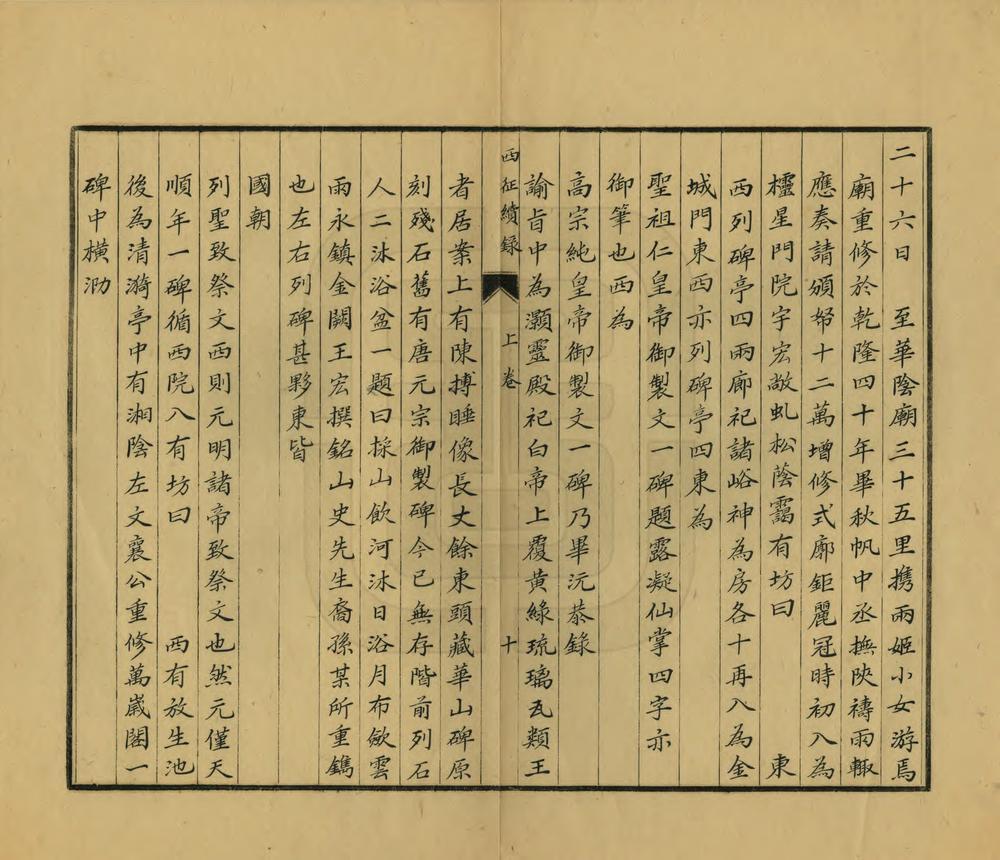 二十六日　至華陰廟三十五里携兩姬小女游焉
廟重修於乾隆四十年畢秋帆中丞撫陝禱雨輙
應奏請頒帑十二萬增修式廓鉅麗冠時初入為
欞星門院宇宏敞虬松蔭靄有坊曰　　　　東
西列碑亭四兩廊祀諸峪神為房各十再入為金
城門東西亦列碑亭四東為
聖祖仁皇帝御製文一碑題露凝仙掌四字亦
御筆也西為
高宗純皇帝御製文一碑乃畢沅恭錄
諭旨中為灝靈殿祀白帝上覆黃綠琉璃瓦類王
西征續録　上卷　十
者居案上有陳摶睡像長丈餘東頭藏華山碑原
刻殘石舊有唐元宗御製碑今已無存階前列石
人二沐浴盆一題曰採山飲河沐日浴月布歛雲
雨永鎮金闕王宏撰銘山史先生裔孫某所重鐫
也左右列碑甚夥東皆
國朝
列聖致祭文西則元明諸帝致祭文也然元僅天
順年一碑循西院入有坊曰　　　西有放生池
後為清漪亭中有湘陰左文襄公重修萬嵗閣一
碑中橫泐